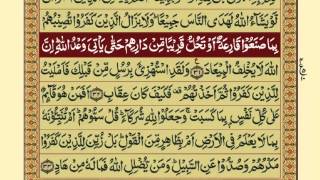 لَّوْ يَشَآءُ اللّٰهُ لَهَدَى النَّاسَ جَمِيْعًا ؕ وَلَا يَزَالُ الَّذِيْنَ كَفَرُوْا تُصِيْبُهُمْ
بِمَا صَنَعُوْا قَارِعَةٌ اَوْ تَحُلُّ قَرِيْبًا مِّنْ دَارِهِمْ حَتّٰى يَاْتِيَ وَعْدُ اللّٰهِ ؕ اِنَّ
اللّٰهَ لَا يُخْلِفُ الْمِيْعَادَ ﴿۳۱﴾ وَلَقَدِ اسْتُهْزِئَ بِرُسُلٍ مِّنْ قَبْلِكَ فَاَمْلَيْتُ
لِلَّذِيْنَ كَفَرُوْا ثُمَّ اَخَذْتُهُمْ فَكَيْفَ كَانَ عِقَابِ ﴿۳۲﴾ اَفَمَنْ هُوَ قَآئِمٌ
عَلٰى كُلِّ نَفْسٍۭ بِمَا كَسَبَتْ ۚ وَجَعَلُوْا لِلّٰهِ شُرَكَآءَ ؕ قُلْ سَمُّوْهُمْ ؕ اَمْ تُنَبِّئُوْنَهٗ
بِمَا لَا يَعْلَمُ فِى الْاَرْضِ اَمْ بِظَاهِرٍ مِّنَ الْقَوْلِ ؕ بَلْ زُيِّنَ لِلَّذِيْنَ كَفَرُوْا
مَكْرُهُمْ وَصُدُّوْا عَنِ السَّبِيْلِ ؕ وَمَنْ يُّضْلِلِ اللّٰهُ فَمَا لَهٗ مِنْ هَادٍ ﴿۳۳﴾